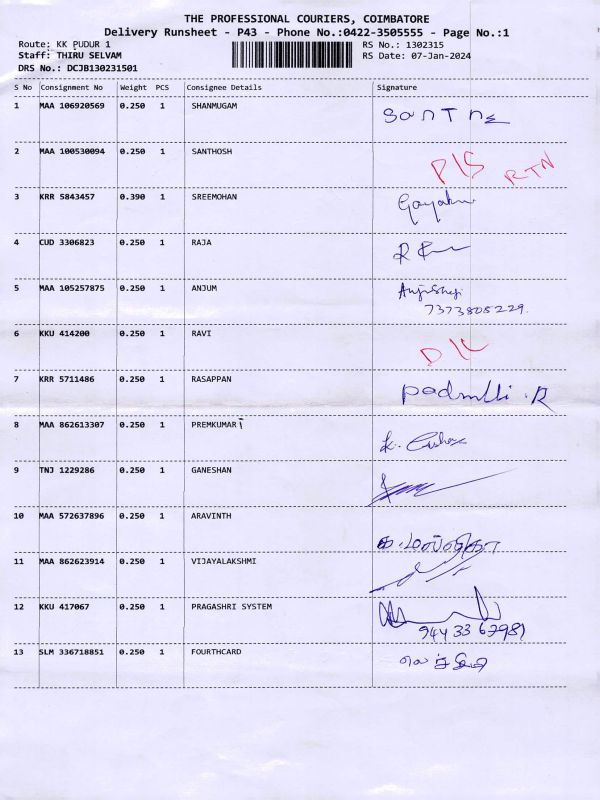 THE PROFESSIONAL COURIERS, COIMBATORE
Delivery Runsheet - P43 - Phone No.:0422-3505555 - Page No.:1
Route: KK PUDUR 1
RS No.: 1302315
Staff: THIRU SELVAM
RS Date: 07-Jan-2024
DRS No.: DCJB130231501
S No Consignment No Weight PCS Consignee Details Signature
1 MAA 106920569 0.250 1 SHANMUGAM
2 MAA 100530094 0.250 1 SANTHOSH
RTN
3 KRR 5843457 0.390 1 SREEMOHAN
4 CUD 3306823 0.250 1 RAJA
5 MAA 105257875 0.250 1 ANJUM
7373805229
6 KKU 414200 0.250 1 RAVI
D/L
7 KRR 5711486 0.250 1 RASAPPAN
8 MAA 862613307 0.250 1 PREMKUMAR
9 TNJ 1229286 0.250 1 GANESHAN
10 MAA 572637896 0.250 1 ARAVINTH
11 MAA 862623914 0.250 1 VIJAYALAKSHMI
12 KKU 417067 0.250 1 PRAGASHRI SYSTEM
13 SLM 336718851 0.250 1 FOURTHCARD